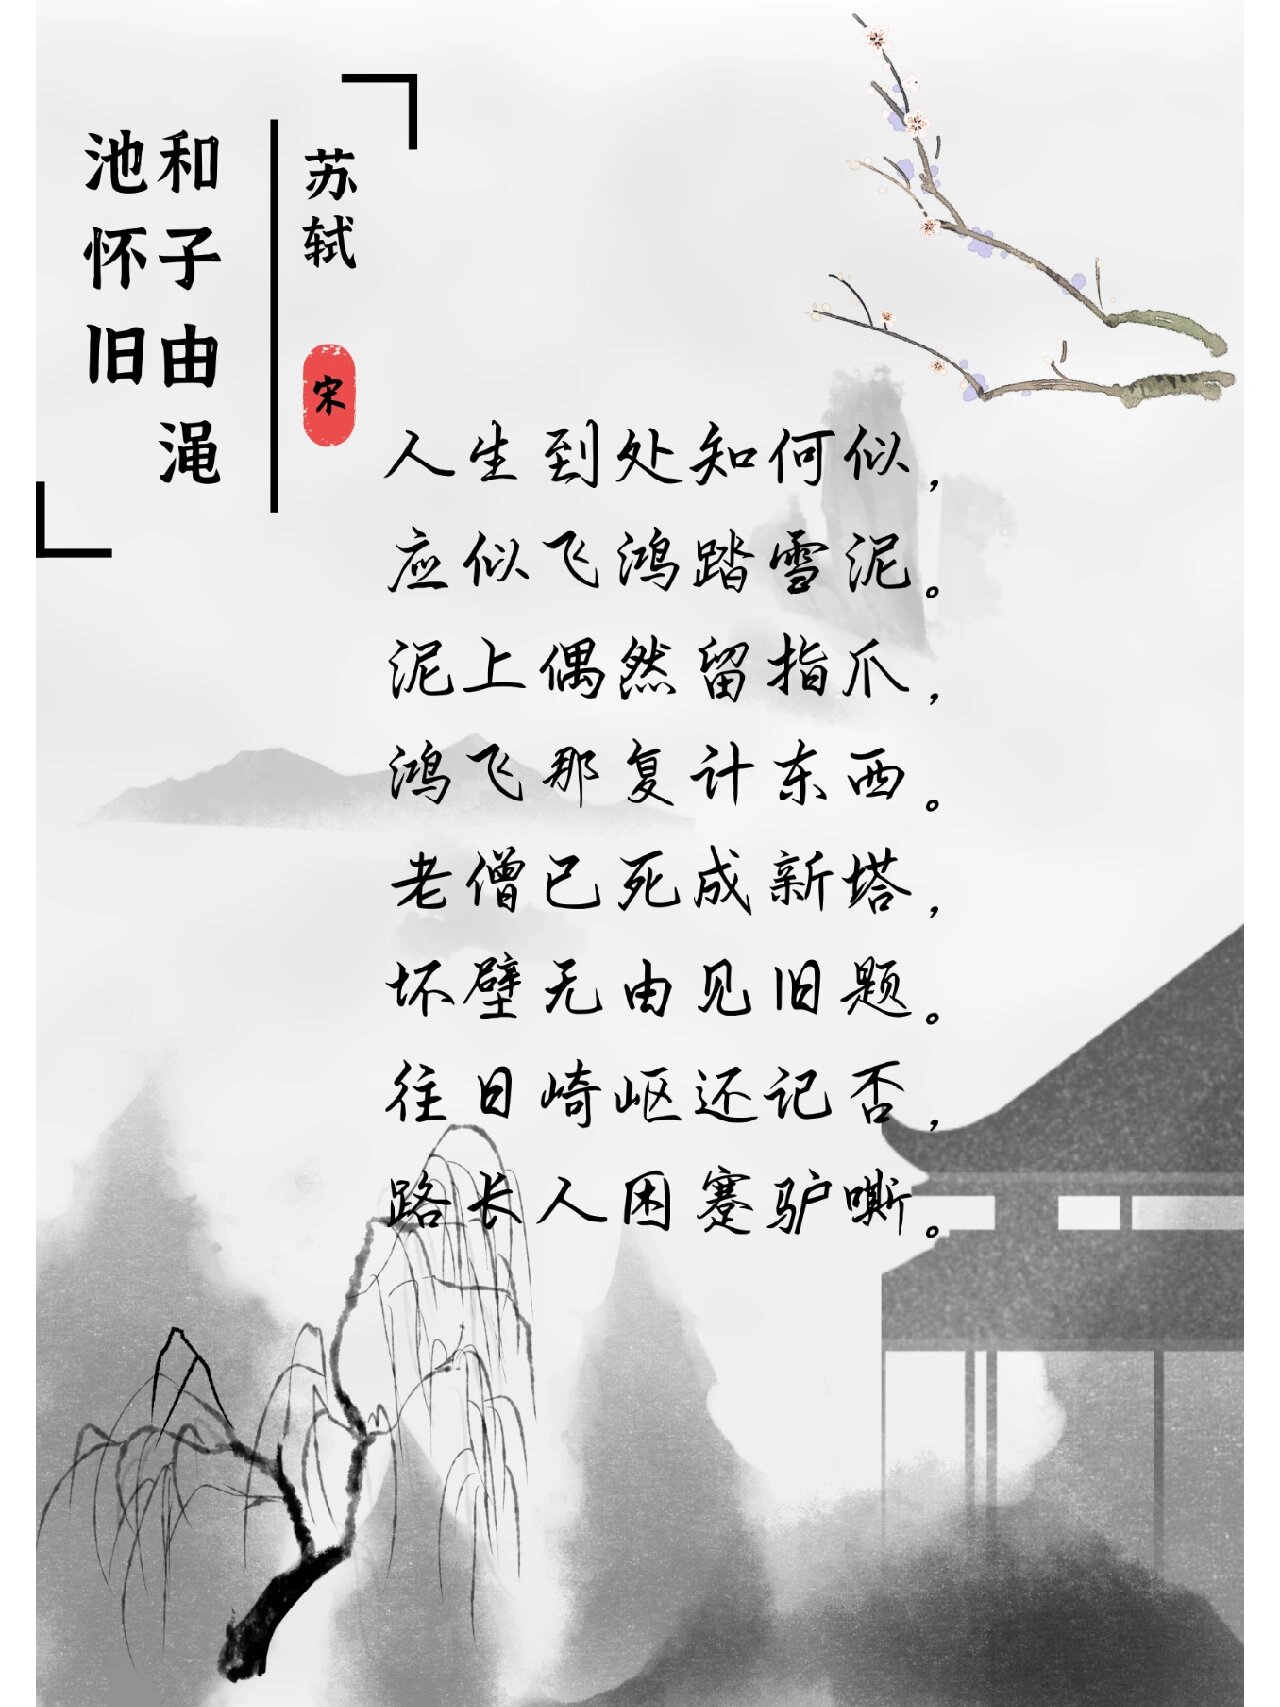 和子由渑
池怀旧
苏轼
宋
人生到处知何似，
应似飞鸿踏雪泥。
泥上偶然留指爪，
鸿飞那复计东西。
老僧已死成新塔，
坏壁无由见旧题。
往日崎岖还记否，
路长人困蹇驴嘶。